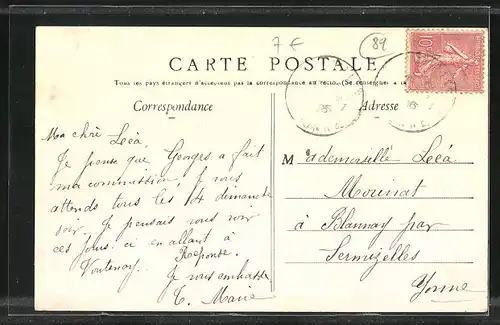 7 €
89
CARTE POSTALE
Tous les pays étrangers n'acceptent pas la correspondance au recto. (Se renseigner à la
Correspondance
Adresse
10
Ma chère Leéa,
Je pense que Georges a fait
ma commission, je vous
attends tous les 14 dimanche
soir. Je pensais vous voir
ces jours ci en allant à
Voutenay. Réponse.
Je vous embrasse
T. Marie
Mademoiselle Leéa
Mourinat
à Blannay par
Sermizelles
Yonne